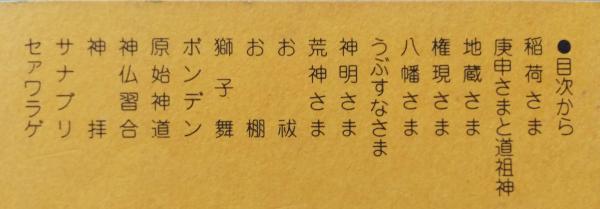 ●目次から
稲荷さま
庚申さまと道祖神
地蔵さま
権現さま
八幡さま
うぶすなさま
神明さま
荒神さま
お祓
お棚
獅子舞
ボンデン
原始神道
神仏習合
神拝
サナブリ
セァワラゲ